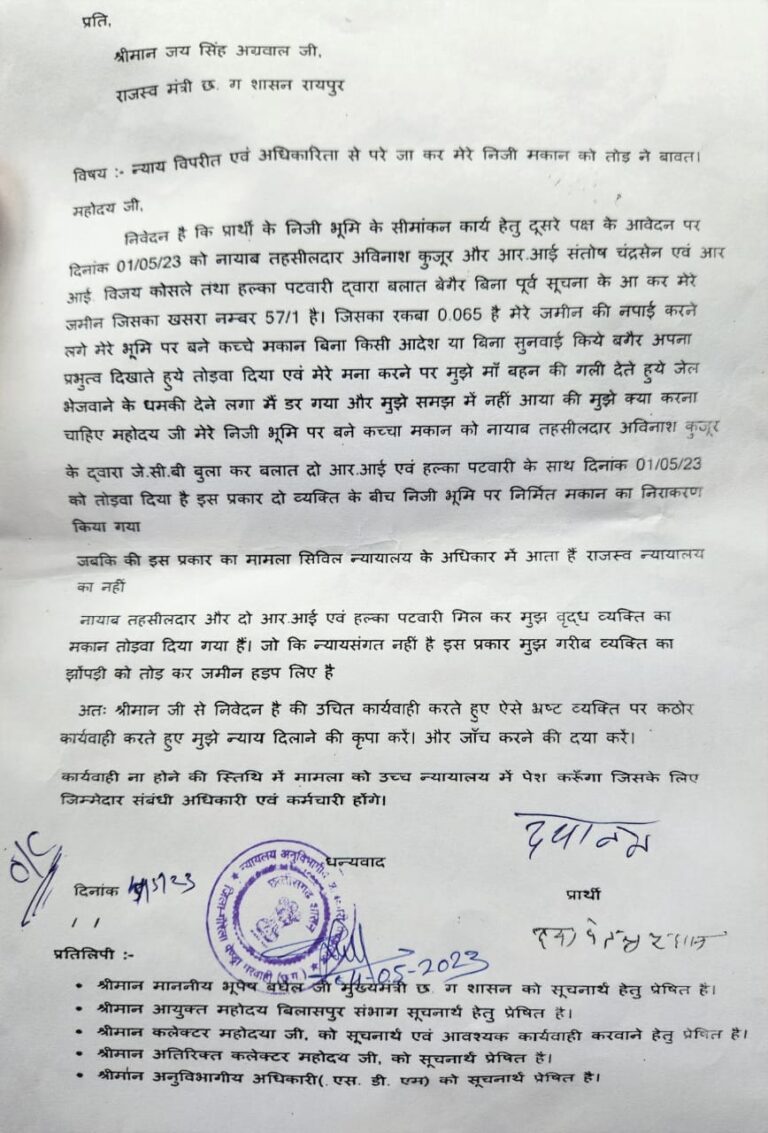 प्रति,
श्रीमान जय सिंह अग्रवाल जी,
राजस्व मंत्री छ. ग शासन रायपुर
विषय :- न्याय विपरीत एवं अधिकारिता से परे जा कर मेरे निजी मकान को तोड ने बावत।
महोदय जी,
निवेदन है कि प्रार्थी के निजी भूमि के सीमांकन कार्य हेतु दूसरे पक्ष के आवेदन पर
दिनांक 01/05/23 को नायाब तहसीलदार अविनाश कुजूर और आर.आई संतोष चंद्रसेन एवं आर
आई. विजय कोसले तथा हल्का पटवारी द्वारा बलात बेगैर बिना पूर्व सूचना के आ कर मेरे
जमीन जिसका खसरा नम्बर 57/1 है। जिसका रकबा 0.065 है मेरे जमीन की नपाई करने
लगे मेरे भूमि पर बने कच्चे मकान बिना किसी आदेश या बिना सुनवाई किये बगैर अपना
प्रभुत्व दिखाते हुये तोड़वा दिया एवं मेरे मना करने पर मुझे माँ बहन की गली देते हुये जेल
भेजवाने के धमकी देने लगा मैं डर गया और मुझे समझ में नहीं आया की मुझे क्या करना
चाहिए महोदय जी मेरे निजी भूमि पर बने कच्चा मकान को नायाब तहसीलदार अविनाश कुजूर
के द्वारा जे.सी.बी बुला कर बलात दो आर.आई एवं हल्का पटवारी के साथ दिनांक 01/05/23
को तोड़वा दिया है इस प्रकार दो व्यक्ति के बीच निजी भूमि पर निर्मित मकान का निराकरण
किया गया
जबकि की इस प्रकार का मामला सिविल न्यायालय के अधिकार में आता हैं राजस्व न्यायालय
का नहीं
नायाब तहसीलदार और दो आर.आई एवं हल्का पटवारी मिल कर मुझ वृद्ध व्यक्ति का
मकान तोड़वा दिया गया हैं। जो कि न्यायसंगत नहीं है इस प्रकार मुझ गरीब व्यक्ति का
झोंपड़ी को तोड़ कर जमीन हड़प लिए है
अतः श्रीमान जी से निवेदन है की उचित कार्यवाही करते हुए ऐसे भ्रष्ट व्यक्ति पर कठोर
कार्यवाही करते हुए मुझे न्याय दिलाने की कृपा करें। और जाँच करने की दया करें।
कार्यवाही ना होने की स्तिथि में मामला को उच्च न्यायालय में पेश करूँगा जिसके लिए
जिम्मेदार संबंधी अधिकारी एवं कर्मचारी होंगे।
धन्यवाद
दिनांक
प्रार्थी
छत्तीसगढ़ शासन
04-05-2023
प्रतिलिपी :-
• श्रीमान माननीय भूपेष बघेल जी मुख्यमंत्री छ. ग शासन को सूचनार्थ हेतु प्रेषित है।
• श्रीमान आयुक्त महोदय बिलासपुर संभाग सूचनार्थ हेतु प्रेषित है।
• श्रीमान कलेक्टर महोदया जी, को सूचनार्थ एवं आवश्यक कार्यवाही करवाने हेतु प्रेषित है।
• श्रीमान अतिरिक्त कलेक्टर महोदय जी, को सूचनार्थ प्रेषित है।
• श्रीमान अनुविभागीय अधिकारी( एस. डी. एम) को सूचनार्थ प्रेषित है।